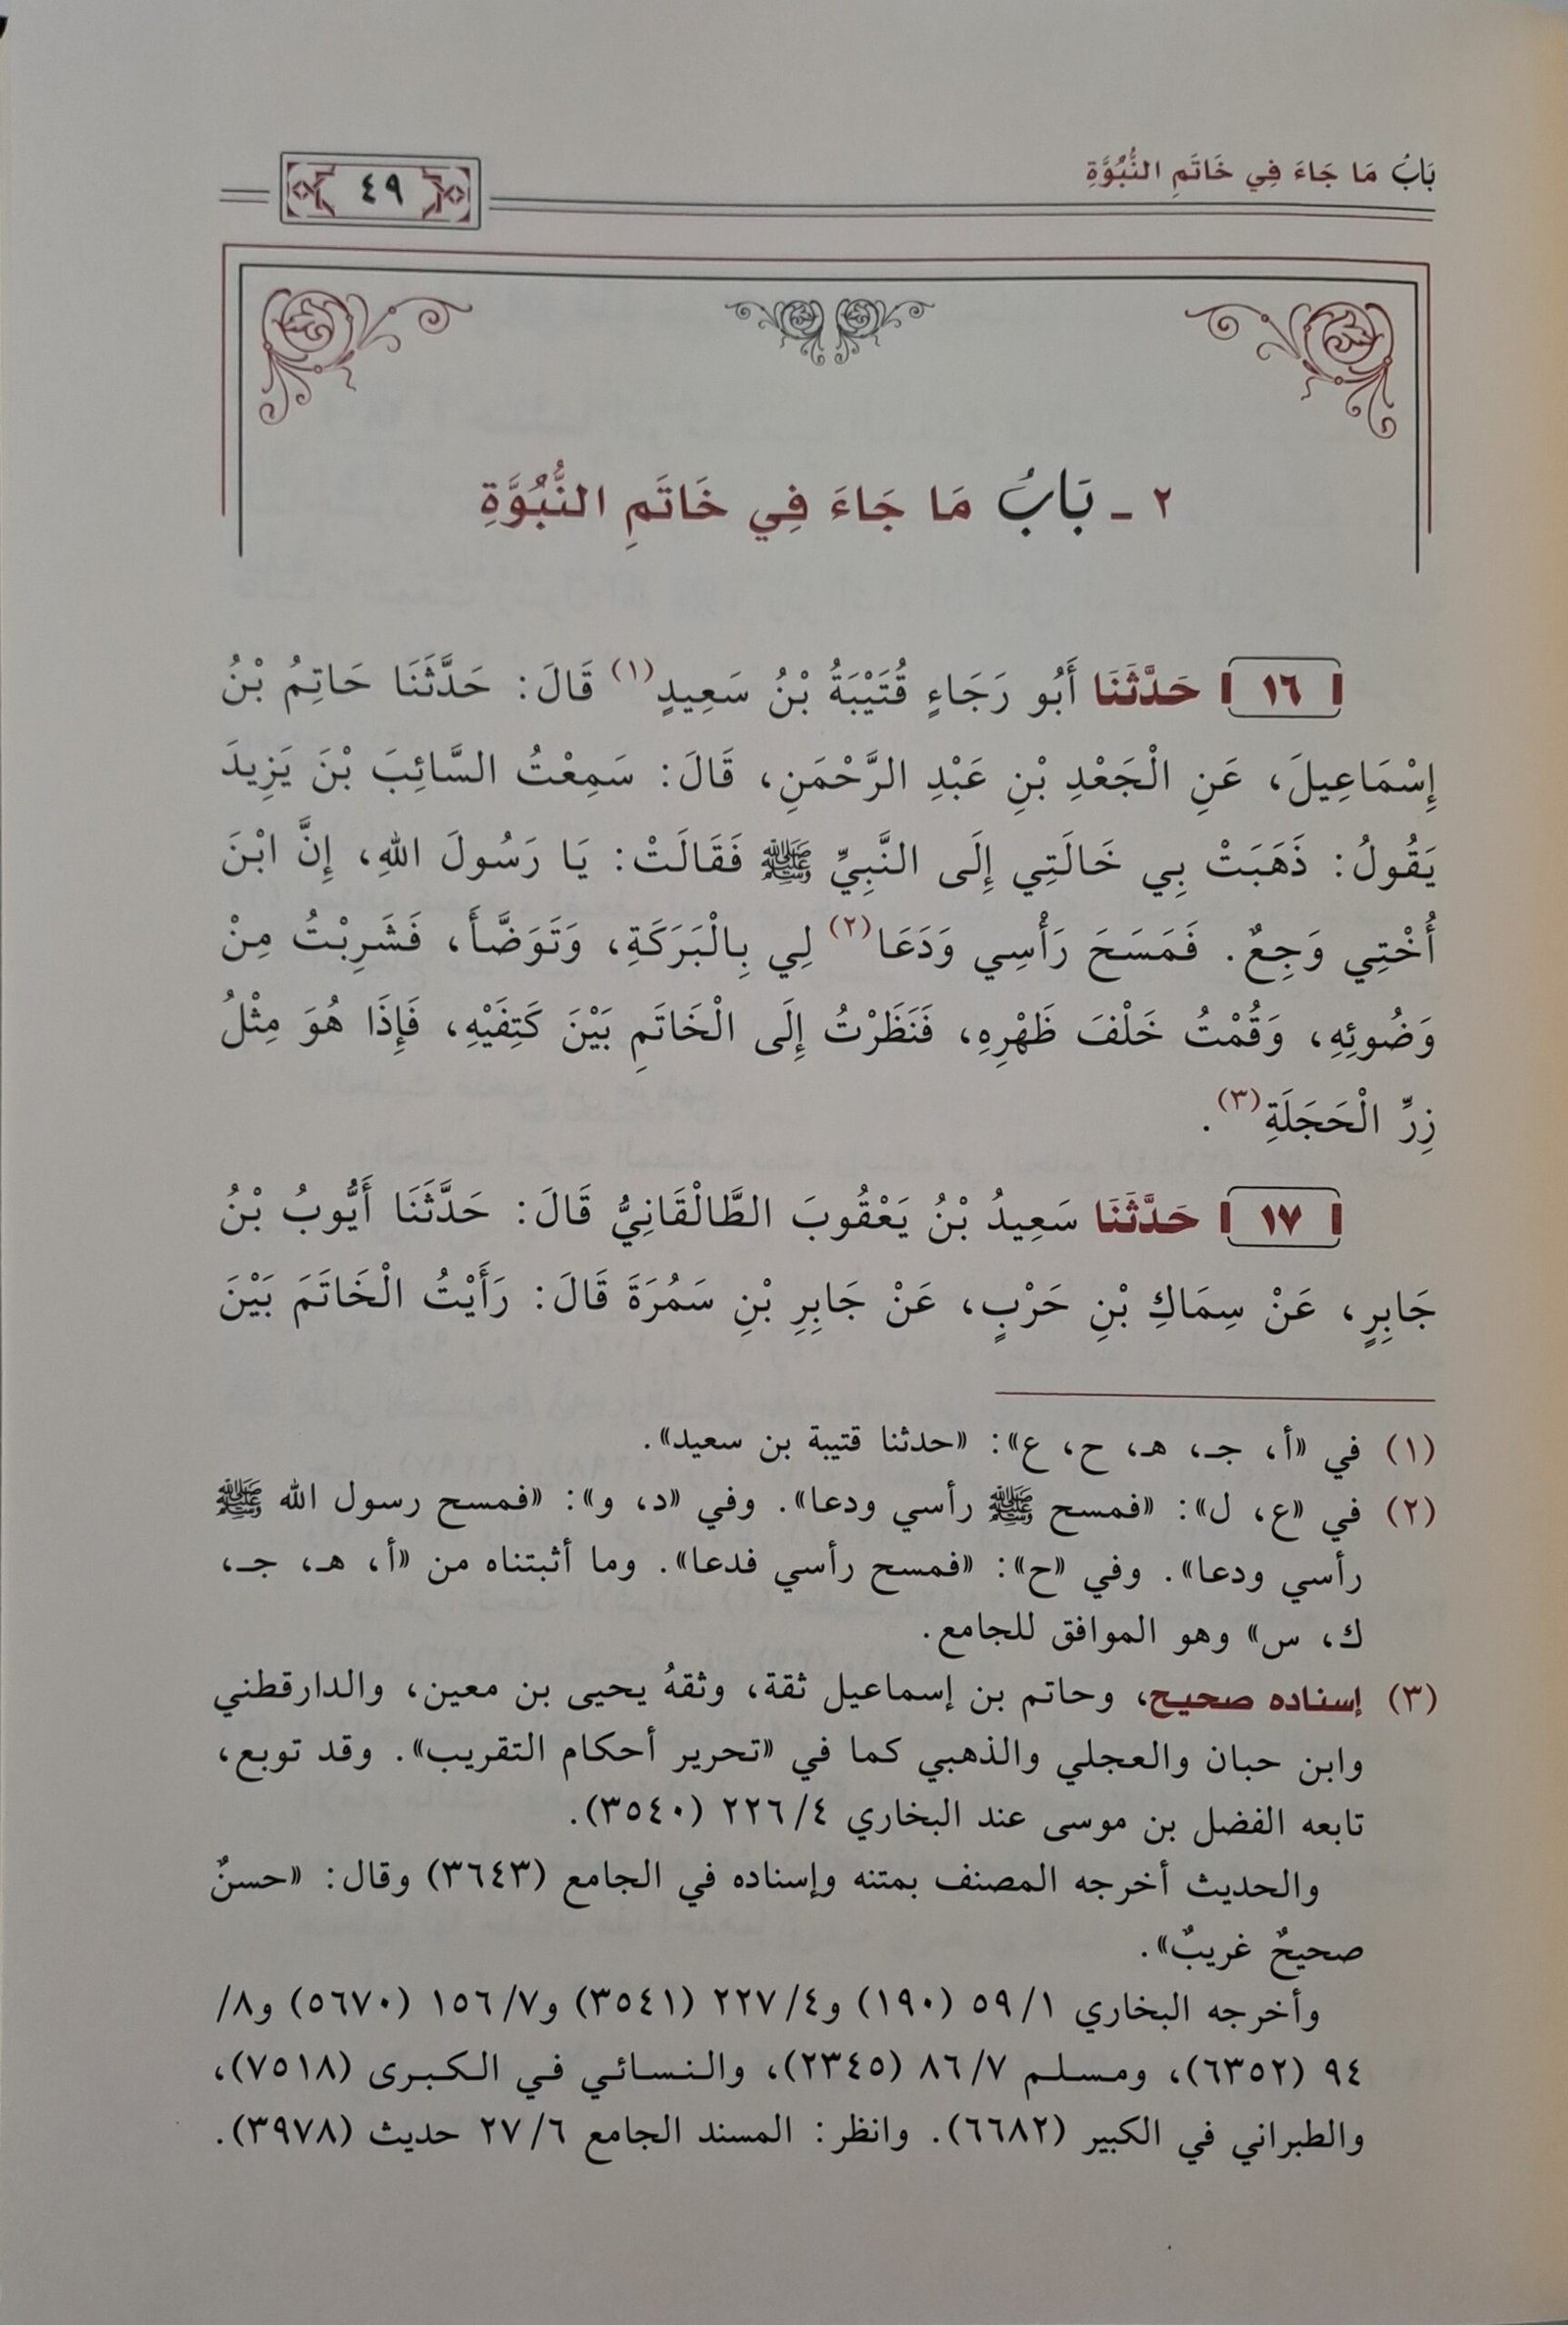 بَابُ مَا جَاءَ فِي خَاتَمِ النُّبُوَّةِ
٤٩
٢ - بَابُ مَا جَاءَ فِي خَاتَمِ النُّبُوَّةِ
١٦ حَدَّثَنَا أَبُو رَجَاءٍ قُتَيْبَةُ بْنُ سَعِيدٍ(١) قَالَ: حَدَّثَنَا حَاتِمُ بْنُ
إِسْمَاعِيلَ، عَنِ الْجَعْدِ بْنِ عَبْدِ الرَّحْمَنِ، قَالَ: سَمِعْتُ السَّائِبَ بْنَ يَزِيدَ
يَقُولُ: ذَهَبَتْ بِي خَالَتِي إِلَى النَّبِيِّ ﷺ فَقَالَتْ: يَا رَسُولَ اللهِ، إِنَّ ابْنَ
أُخْتِي وَجِعٌ. فَمَسَحَ رَأْسِي وَدَعَا(٢) لِي بِالْبَرَكَةِ، وَتَوَضَّأَ، فَشَرِبْتُ مِنْ
وَضُوئِهِ، وَقُمْتُ خَلْفَ ظَهْرِهِ، فَنَظَرْتُ إِلَى الْخَاتَمِ بَيْنَ كَتِفَيْهِ، فَإِذَا هُوَ مِثْلُ
زِرِّ الْحَجَلَةِ(٣).
١٧ حَدَّثَنَا سَعِيدُ بْنُ يَعْقُوبَ الطَّالْقَانِيُّ قَالَ: حَدَّثَنَا أَيُّوبُ بْنُ
جَابِرٍ، عَنْ سِمَاكِ بْنِ حَرْبٍ، عَنْ جَابِرِ بْنِ سَمُرَةَ قَالَ: رَأَيْتُ الْخَاتَمَ بَيْنَ
(١) في «أ، جـ، هـ، ح، ع»: «حدثنا قتيبة بن سعيد».
(٢) في «ع، ل»: «فمسح ﷺ رأسي ودعا». وفي «د، و»: «فمسح رسول الله ﷺ
رأسي ودعا». وفي «ح»: «فمسح رأسي فدعا». وما أثبتناه من «أ، هـ، جـ،
ك، س» وهو الموافق للجامع.
(٣) إسناده صحيح، وحاتم بن إسماعيل ثقة، وثقهُ يحيى بن معين، والدارقطني
وابن حبان والعجلي والذهبي كما في «تحرير أحكام التقريب». وقد توبع،
تابعه الفضل بن موسى عند البخاري ٤/ ٢٢٦ (٣٥٤٠).
والحديث أخرجه المصنف بمتنه وإسناده في الجامع (٣٦٤٣) وقال: «حسنٌ
صحيحٌ غريبٌ».
وأخرجه البخاري ١/ ٥٩ (١٩٠) و٤/ ٢٢٧ (٣٥٤١) و٧/ ١٥٦ (٥٦٧٠) و٨/
٩٤ (٦٣٥٢)، ومسلم ٧/ ٨٦ (٢٣٤٥)، والنسائي في الكبرى (٧٥١٨)،
والطبراني في الكبير (٦٦٨٢). وانظر: المسند الجامع ٦/ ٢٧ حديث (٣٩٧٨).